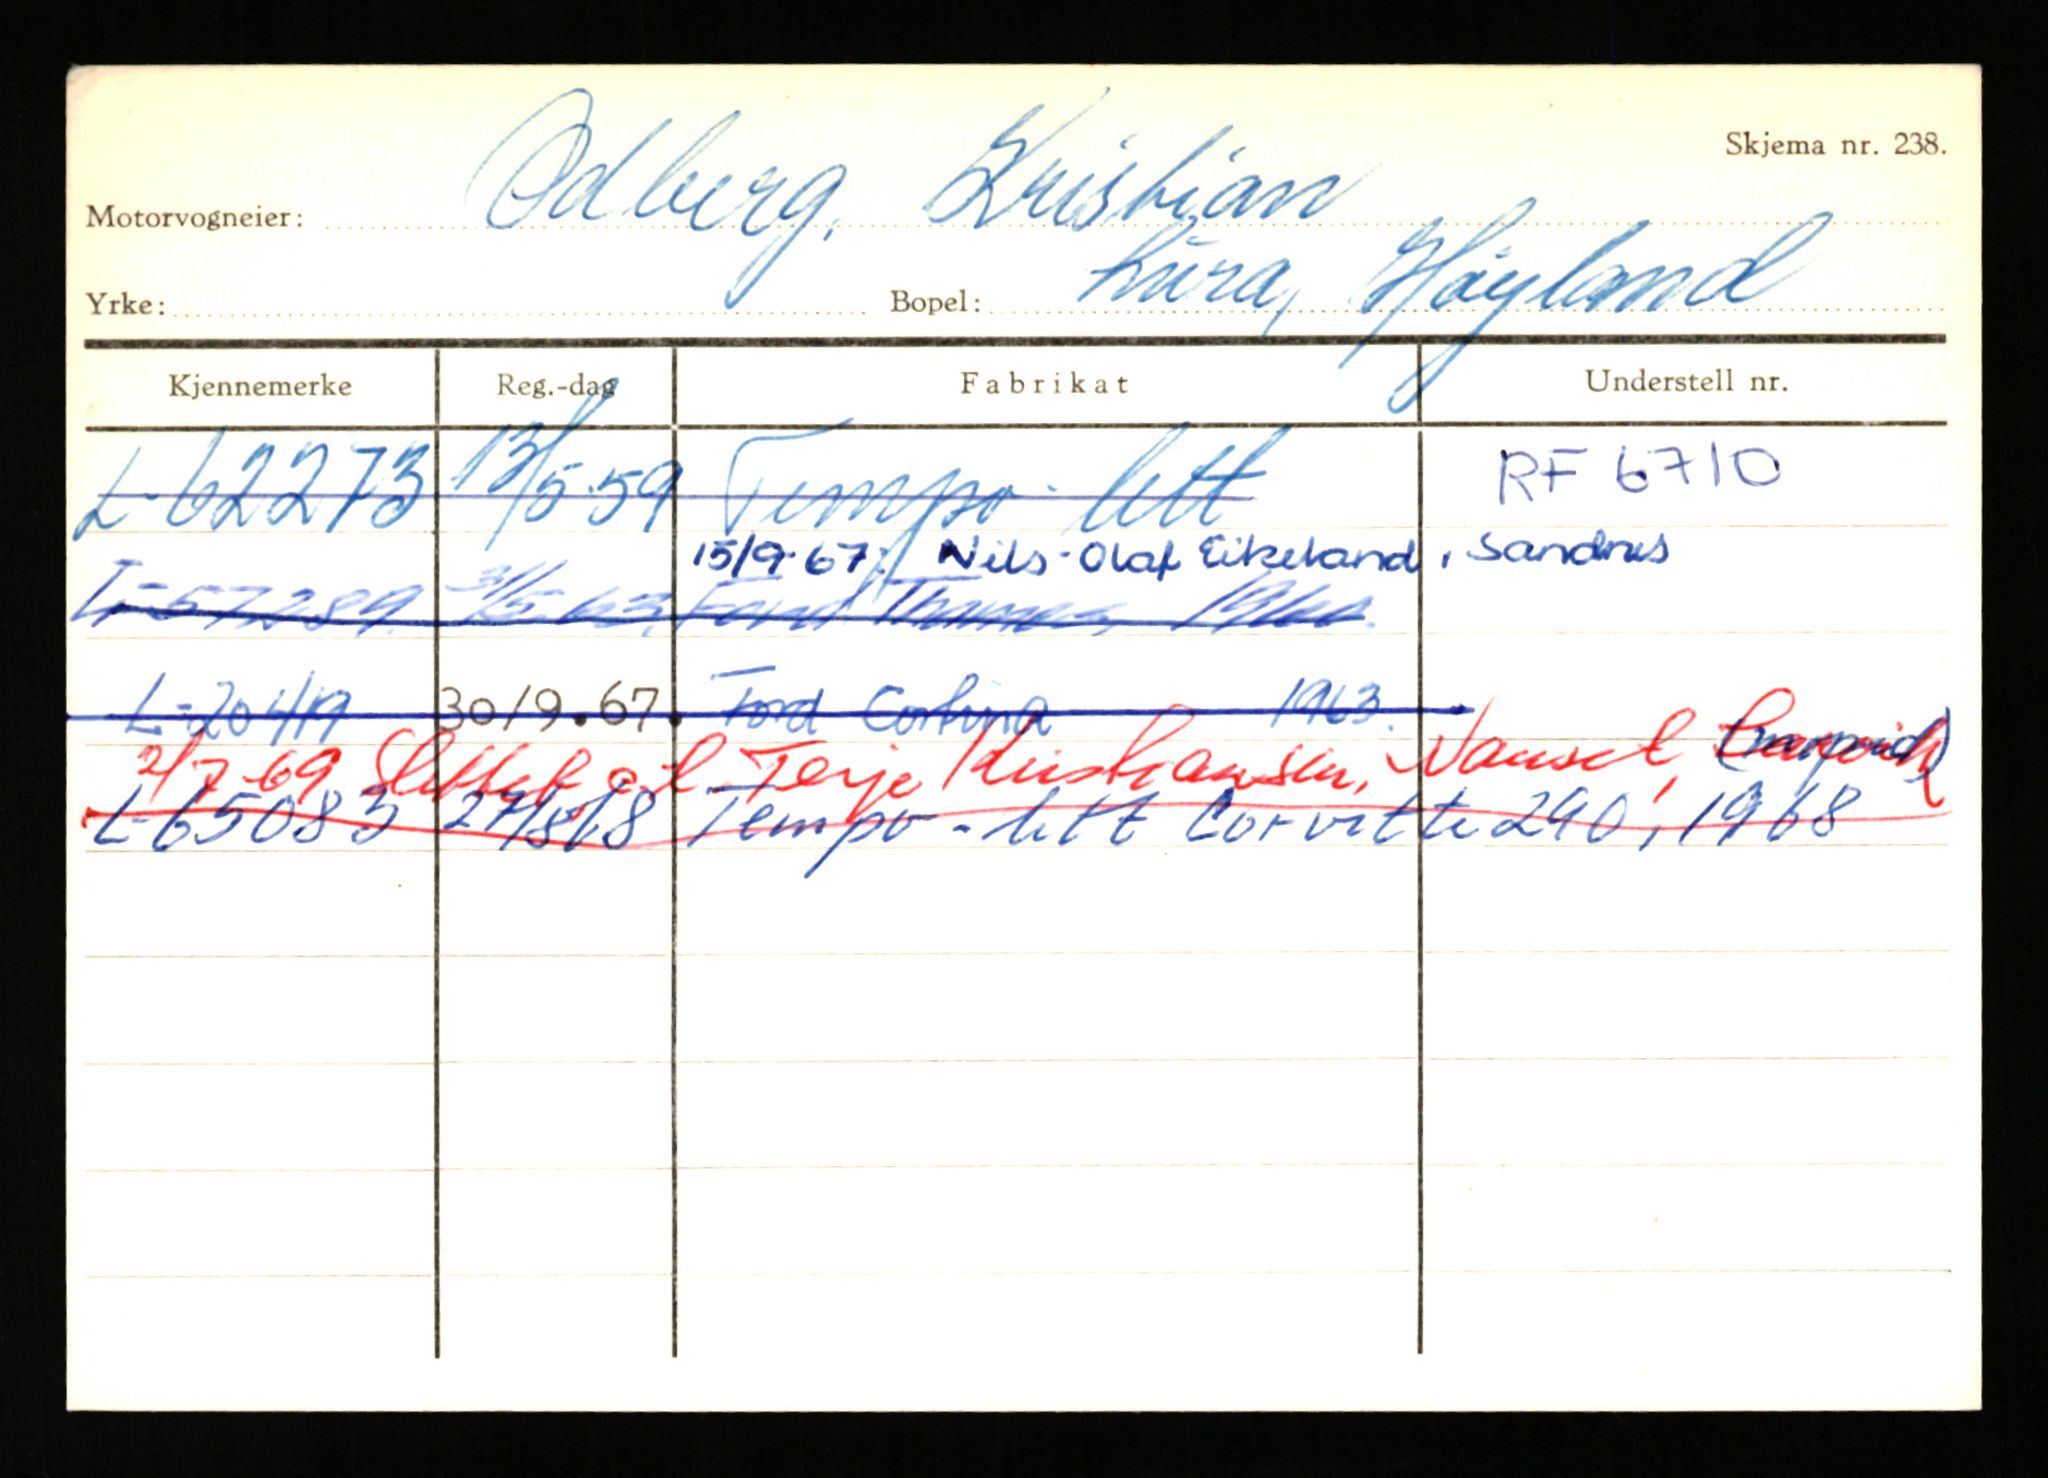 Skjema nr. 238.
Motorvogneier: Ødberg, Kristian
Yrke: Bopel: Lura, Høyland
Kjennemerke Reg.-dag Fabrikat Understell nr.
L-62273 13/5.59 Tempo-lett RF 6710
15/9-67: Nils-Olaf Eikeland, Sandnes
L-57289. 31/5-63, Ford Thames,
30/9.67. Ford Cortina 1963.
2/7-69 Slettet o.t. Terje Kristiansen,
L-65083 27/8.68 Tempo-lett Corvette 290, 1968